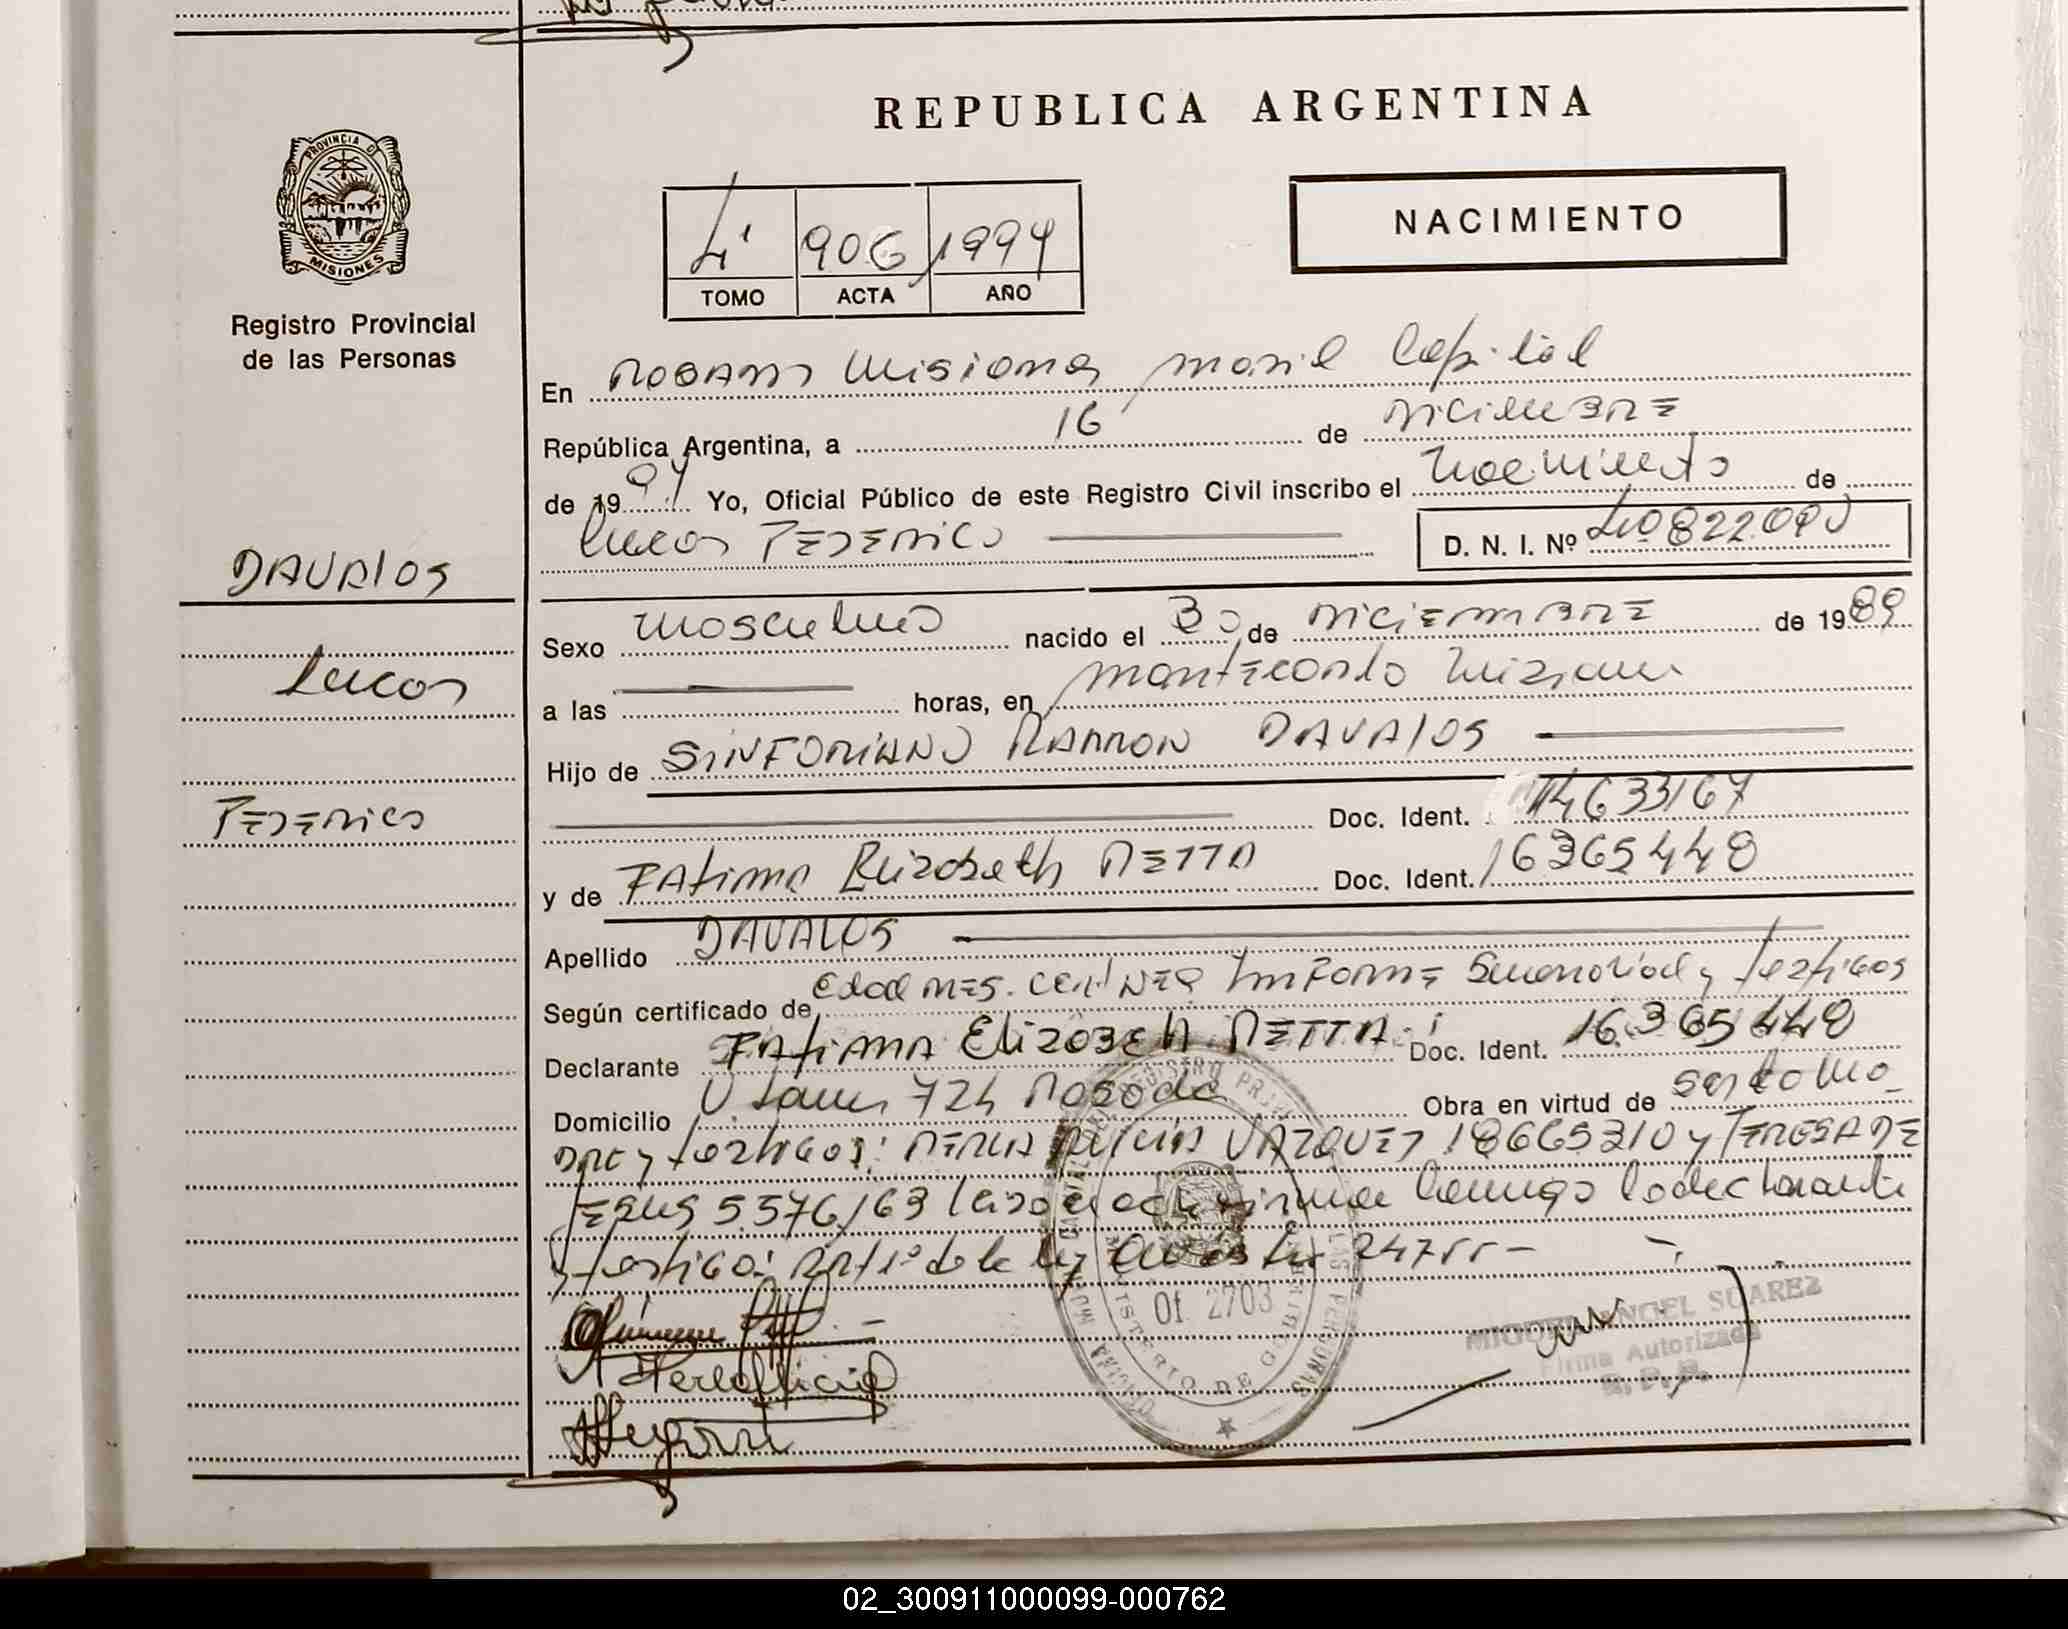 REPUBLICA ARGENTINA
PROVINCIA D
MISIONES
Registro Provincial
de las Personas
NACIMIENTO
4' 906 1994
TOMO ACTA AÑO
En Misiones movil Capital
República Argentina, a 16 de DICIEMBRE
de 1994 Yo, Oficial Público de este Registro Civil inscribo el Nacimiento de
Lucas FEDERICO D. N. I. Nº
DAVALOS
Sexo Masculino nacido el 30 de DICIEMBRE de 1989
Lucas
a las horas, en Montecarlo Misiones
Hijo de SINFORIANO RAMON DAVALOS
FEDERICO
Doc. Ident. 14633167
y de FATIMA Elizabeth Doc. Ident. 16365448
Apellido DAVALOS
Según certificado de Edad MES. CERT NEG INFORME Sumarial y testigos
Declarante FATIMA Elizabeth Doc. Ident. 16.365448
Domicilio 724 Posadas Obra en virtud de ser la Ma
DRE y testigos: VAZQUEZ 18665310 y TERESA DE
JESUS 5.576/63 Leida el acta firman Conmigo La declarante
y testigo: de la ley 24755 -
OF 2703
MINISTERIO DE GOBIERNO
MIGUEL ANGEL SUAREZ
Firma Autorizada
R. P. P.
02_300911000099-000762